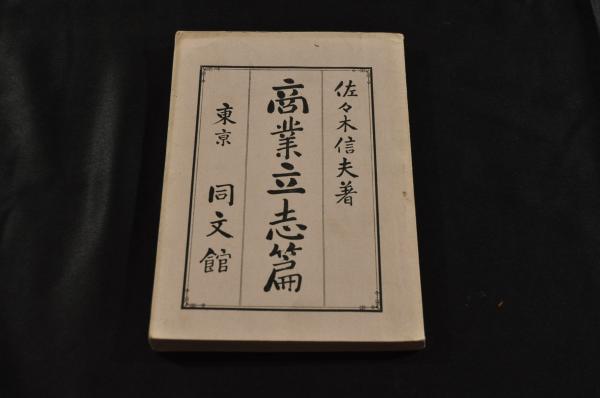 佐々木信夫著
商業立志篇
東亰 同文館